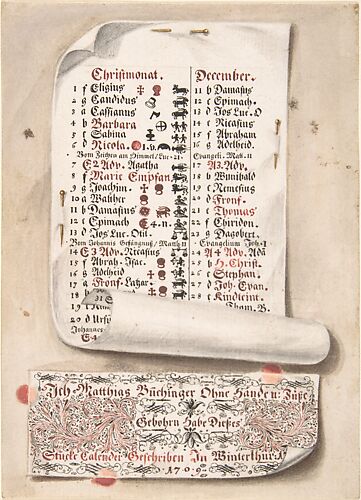 Christmonat.
1 f Eligius
2 g Candidus
3 a Cassianus
4 b Barbara
5 c Sabina
6 d Nicola
Vom Zeichen am Himmel/Luc. 21.
E 2 Adv. Agatha
8 f Marie Empfan.
9 g Joachim.
10 a Walther
11 b Damasius
12 c Epimach
13 d Jos Luc. Otil.
Vom Johannis Gefängnuß/Matt. 11
14 E 3 Adv. Nicasius
15 f Abrah. Isac.
16 g Adelheid
17 a Fronf. Lazar.
18
31 S
19
20 d Urs
Johannes
E 4
December.
11 b Damasius
12 c Epimach.
13 d Jos Luc. O
14 e Nicasius
15 f Abraham
16 g Adelheid.
Evangeli. Matt. 11
A 3. Adv.
18 b Wunibald
19 c Nemesius
20 d Fronf.
21 Thomas
22 f Chiridon.
23 g Dagobert.
Evangelium Joh. 1
24 A 4 Adv. Ada
25 b H. Christ.
26 c Stephan.
27 d Joh. Evan.
28 e Kindleint.
Tham. B.
Ich Matthias Büchinger Ohne Hände u: Füße
Gebohrn Habe Dießes
Stucke Calender Geschriben In Winterthur.
1709